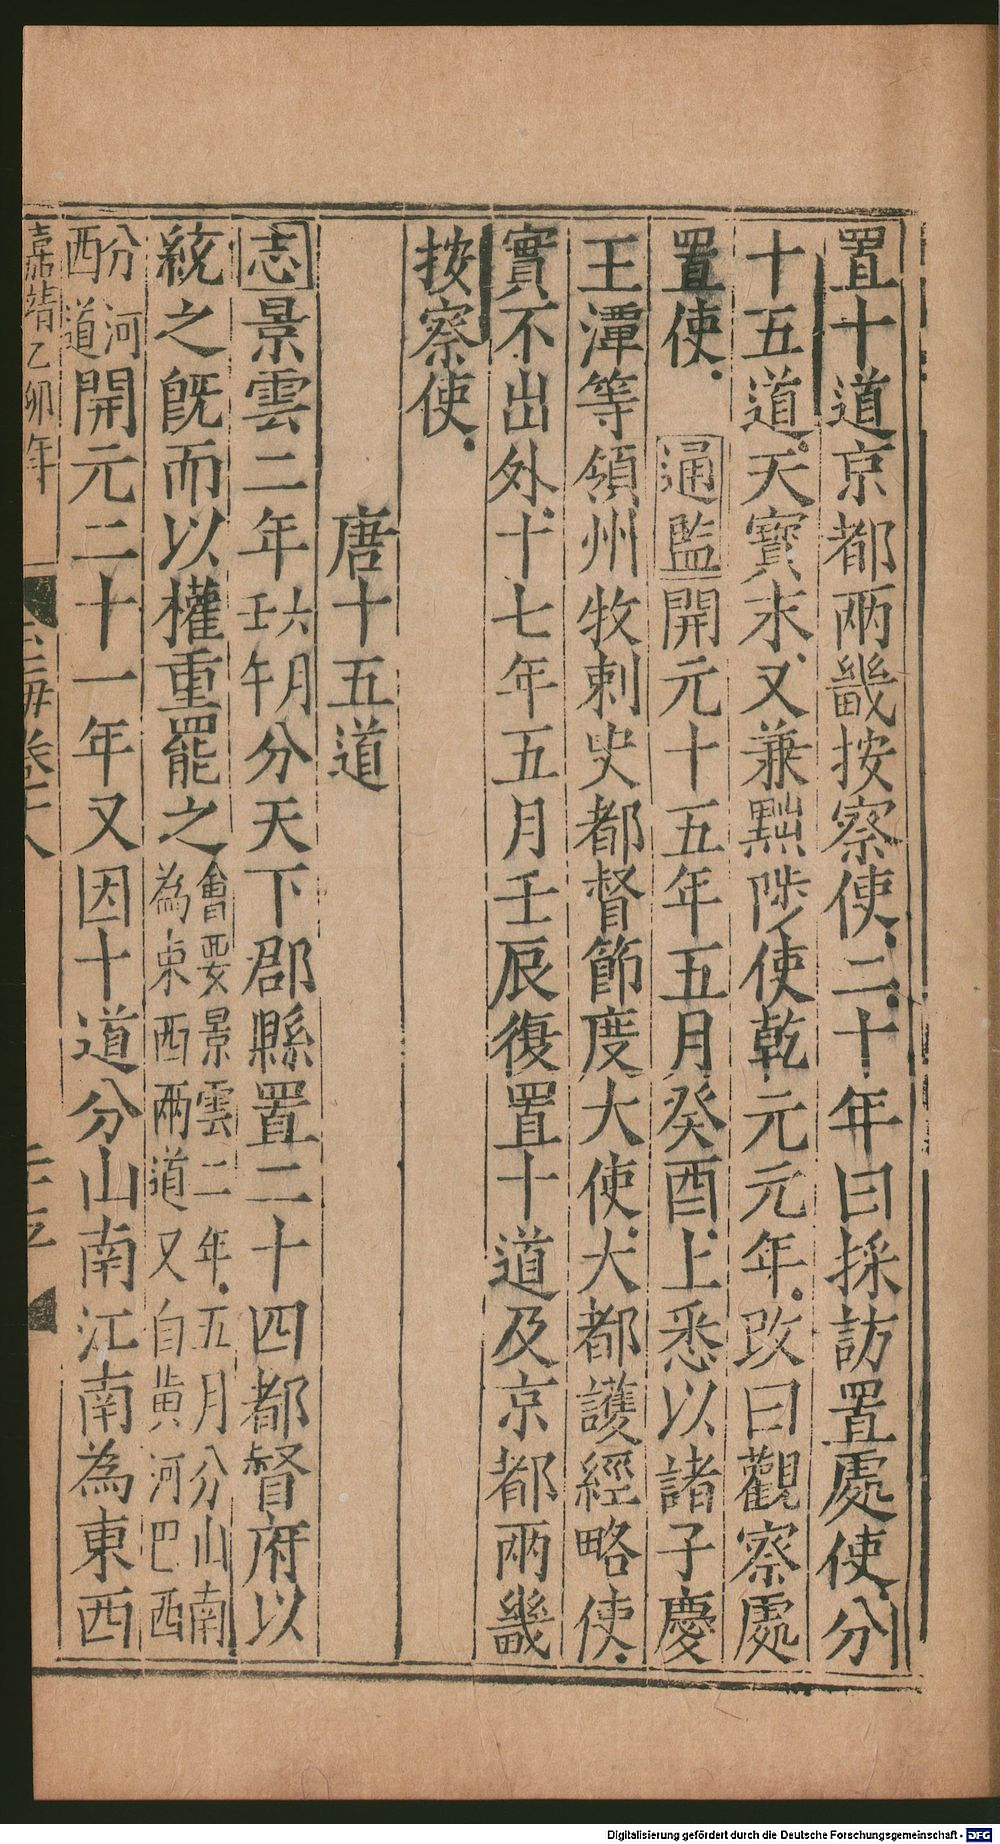 置十道京都兩畿按察使二十年曰採訪置處使分
十五道天寶末又兼黜陟使乾元元年改曰觀察處
置使 通監開元十五年五月癸酉上悉以諸子慶
王潭等領州牧刺史都督節度大使大都護經略使
實不出外十七年五月壬辰復置十道及京都兩畿
按察使
唐十五道
志景雲二年六月壬午分天下郡縣置二十四都督府以
統之旣而以權重罷之會要景雲二年五月分山南為東西兩道又自黃河巴西
分河西道開元二十一年又因十道分山南江南為東西
嘉靖乙卯年 玉海卷十八
Digitalisierung gefördert durch die Deutsche Forschungsgemeinschaft - DFG